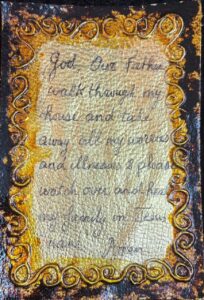 God Our Father
walk through my
house and take
away all my worries
and illnesses & please
watch over and heal
my family in Jesus
name Amen